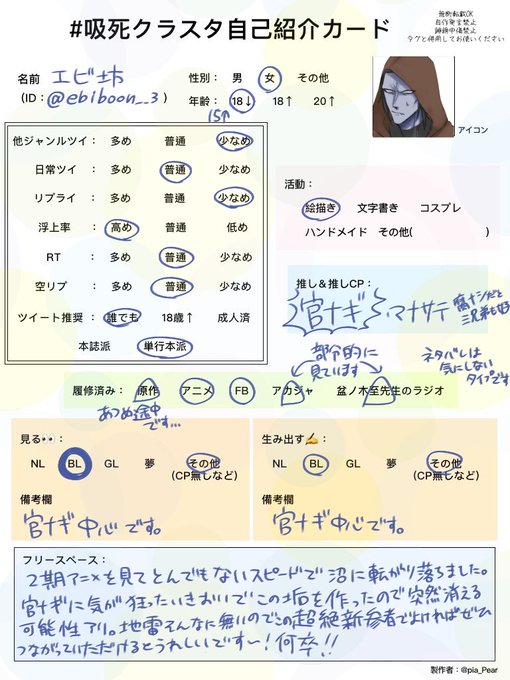 #吸死クラスタ自己紹介カード
無断転載OK
自作発言禁止
誹謗中傷禁止
タグと併用してお使いください
名前 エビ坊
(ID：@ebiboon__3)
性別： 男 女 その他
年齢： 18↓ 18↑ 20↑
15↑
アイコン
他ジャンルツイ： 多め 普通 少なめ
日常ツイ： 多め 普通 少なめ
リプライ： 多め 普通 少なめ
浮上率： 高め 普通 低め
RT： 多め 普通 少なめ
空リプ： 多め 普通 少なめ
ツイート推奨： 誰でも 18歳↑ 成人済
本誌派 単行本派
活動：
絵描き 文字書き コスプレ
ハンドメイド その他( )
推し＆推しCP：
官ナギ マナサテ 腐ナシだと
三兄弟も好
部分的に
見ています
ネタバレは
気にしない
タイプです
履修済み： 原作 アニメ FB アカジャ 盆ノ木至先生のラジオ
あつめ途中
です...
見る👀：
NL BL GL 夢 その他
(CP無しなど)
備考欄
官ナギ中心です。
生み出す✍：
NL BL GL 夢 その他
(CP無しなど)
備考欄
官ナギ中心です。
フリースペース：
2期アニメを見てとんでもないスピードで沼に転がり落ちました。
官ナギに気が狂ったいきおいでこの垢を作ったので突然消える
可能性アリ。地雷そんなに無いのでこの超絶新参者でよければぜひ
つながっていただけるとうれしいです〜!何卒!!
製作者：@pia_Pear